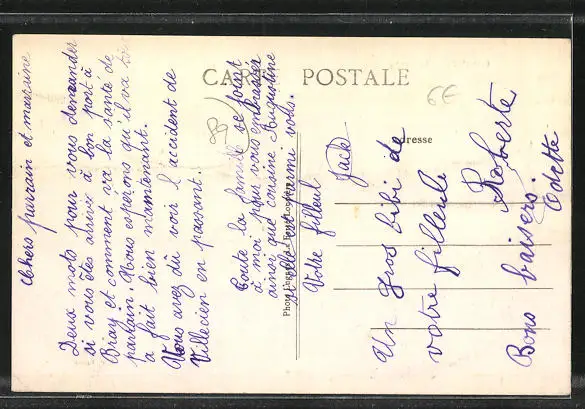 CARTE POSTALE
6E
Adresse
Chers parrain et marraine
Deux mots pour vous demander
si vous êtes arrivé à bon port à
Bray et comment va la santé de
parrain. Nous espérons qu'il va tout
à fait bien maintenant.
Vous avez dû voir l'accident de
Villecien en passant.
Toute la famille se joint
à moi pour vous embrasser
ainsi que cousine Augustine
si elle est parmi vous.
Votre filleul Jack
Un gros bibi de
votre filleule
Roberte
Bons baisers Odette
Photo